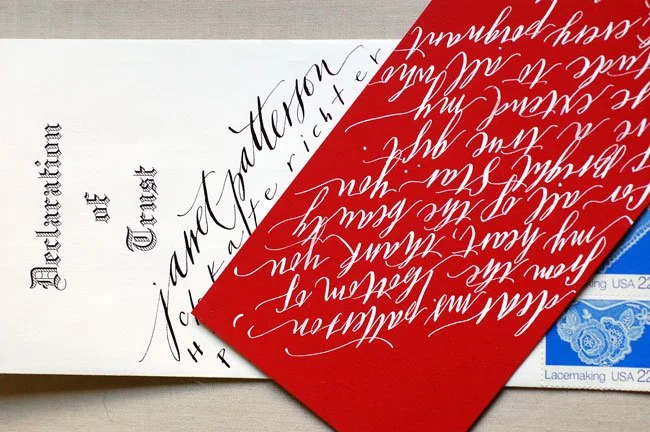 Declaration
of
Trust
janet patterson
kate richter
H
P
dear ms patterson,
from the bottom of
my heart, thank you
for all of the beauty
Bright Star. you
a true gift.
extend my
to all who
every poignant
making USA 22
Lacemaking USA 22